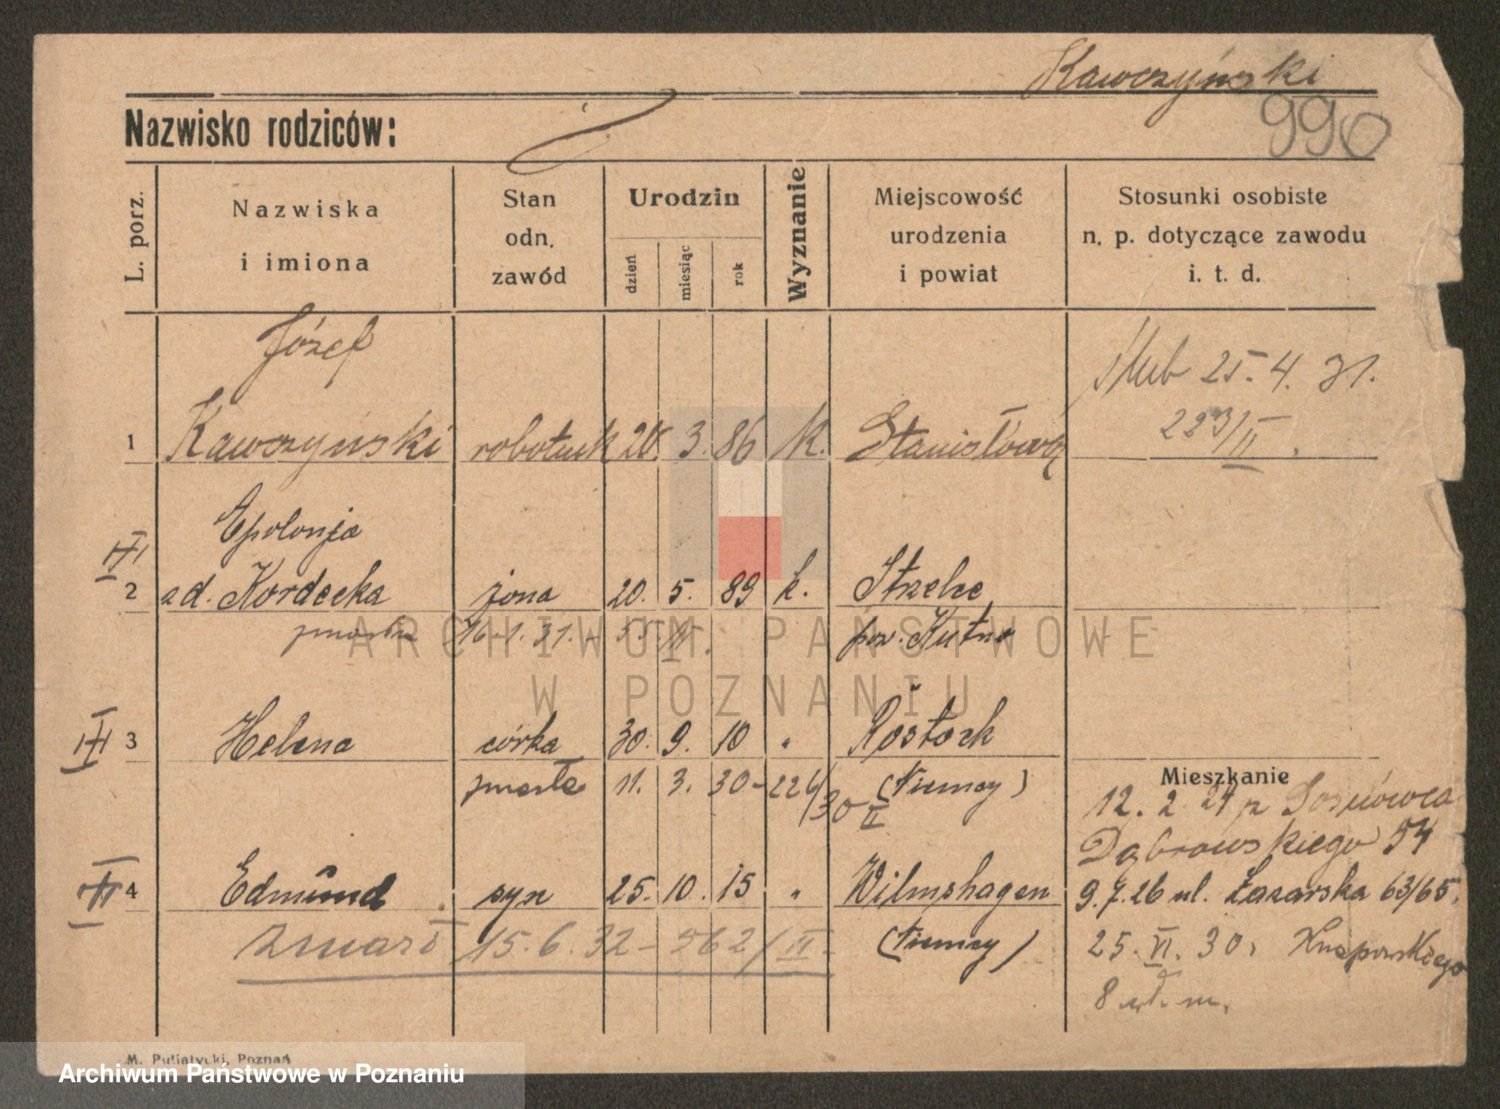 Kawczyński
Nazwisko rodziców:
990
L. porz.
Nazwiska
i imiona
Stan
odn.
zawód
Urodzin
dzień
miesiąc
rok
Wyznanie
Miejscowość
urodzenia
i powiat
Stosunki osobiste
n. p. dotyczące zawodu
i. t. d.
Józef
1 Kawczyński robotnik 20. 3. 86 k.
ślub 25. 4. 31.
223/II.
Epolonja
2 zd. Kordecka żona 20. 5. 89 k. Strzelce
zmarła 16. 1. 31. - 55 II. pow. Kutno
3 Helena córka 30. 9. 10 " Rostock
zmarła 11. 3. 30 - 226/30 II (Niemcy)
4 Edmund syn 25. 10. 15 " Wilmshagen
zmarł 15. 6. 32 - 562/II. (Niemcy)
Mieszkanie
12. 2. 24 z Sosnowca
Dąbrowskiego 54
9. 7. 26 ul. Łazarska 63/65.
25. VI. 30. Knapowskiego
8 wł. m.
M. Putiatycki, Poznań
ARCHIWUM PAŃSTWOWE
W POZNANIU
Archiwum Państwowe w Poznaniu